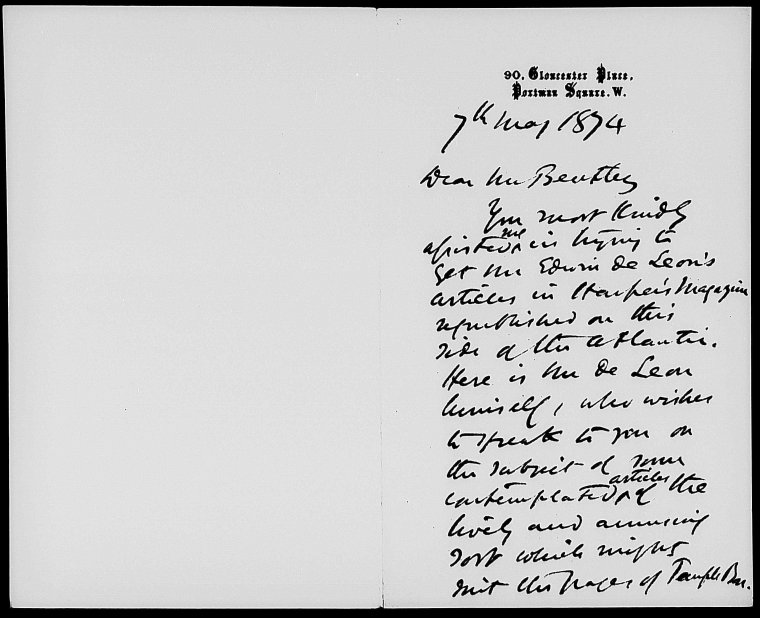 90, Gloucester Place,
Portman Square. W.
7th May 1874
Dear Mr Bentley
You most kindly
assisted me in trying to
get Mr Edwin de Leon's
articles in Harper's Magazine
republished on this
side of the Atlantic.
Here is Mr de Leon
himself, who wishes
to speak to you on
the subject of some
contemplated articles of the
lively and amusing
sort which might
suit the pages of Temple Bar.